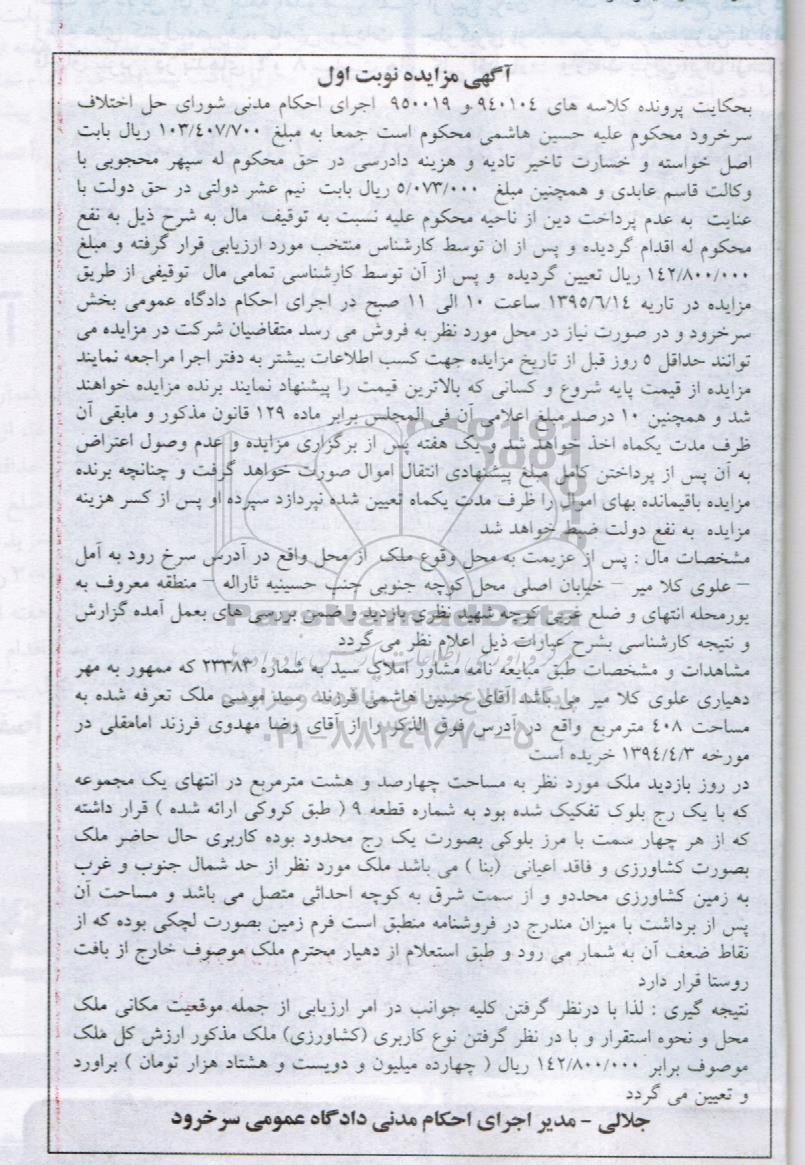 آگهی مزایده نوبت اول
بحکایت پرونده کلاسه های ۹۴۰۱۰۴ و ۹۵۰۰۱۹ اجرای احکام مدنی شورای حل اختلاف
سرخرود محکوم علیه حسین هاشمی محکوم است جمعا به مبلغ ۱۰۳/۴۰۷/۷۰۰ ریال بابت
اصل خواسته و خسارت تاخیر تادیه و هزینه دادرسی در حق محکوم له سپهر محجوبی با
وکالت قاسم عابدی و همچنین مبلغ ۵/۰۷۳/۰۰۰ ریال بابت نیم عشر دولتی در حق دولت با
عنایت به عدم پرداخت دین از ناحیه محکوم علیه نسبت به توقیف مال به شرح ذیل به نفع
محکوم له اقدام گردیده و پس از ان توسط کارشناس منتخب مورد ارزیابی قرار گرفته و مبلغ
۱۴۲/۸۰۰/۰۰۰ ریال تعیین گردیده و پس از آن توسط کارشناسی تمامی مال توقیفی از طریق
مزایده در تاریه ۱۳۹۵/۶/۱۴ ساعت ۱۰ الی ۱۱ صبح در اجرای احکام دادگاه عمومی بخش
سرخرود و در صورت نیاز در محل مورد نظر به فروش می رسد متقاضیان شرکت در مزایده می
توانند حداقل ۵ روز قبل از تاریخ مزایده جهت کسب اطلاعات بیشتر به دفتر اجرا مراجعه نمایند
مزایده از قیمت پایه شروع و کسانی که بالاترین قیمت را پیشنهاد نمایند برنده مزایده خواهند
شد و همچنین ۱۰ درصد مبلغ اعلامی آن فی المجلس برابر ماده ۱۲۹ قانون مذکور و مابقی آن
ظرف مدت یکماه اخذ خواهد شد و یک هفته پس از برگزاری مزایده و عدم وصول اعتراض
به آن پس از پرداختن کامل مبلغ پیشنهادی انتقال اموال صورت خواهد گرفت و چنانچه برنده
مزایده باقیمانده بهای اموال را ظرف مدت یکماه تعیین شده نپردازد سپرده او پس از کسر هزینه
مزایده به نفع دولت ضبط خواهد شد
مشخصات مال : پس از عزیمت به محل وقوع ملک از محل واقع در آدرس سرخ رود به آمل
– علوی کلا میر – خیابان اصلی محل کوچه جنوبی جنب حسینیه ثاراله – منطقه معروف به
یورمحله انتهای و ضلع غربی کوچه شهید نظری بازدید و ضمن بررسی های بعمل آمده گزارش
و نتیجه کارشناسی بشرح عبارات ذیل اعلام نظر می گردد
مشاهدات و مشخصات طبق مبایعه نامه مشاور املاک سید به شماره ۲۳۳۸۳ که ممهور به مهر
دهیاری علوی کلا میر می باشد آقای حسین هاشمی فرزند سید موسی ملک تعرفه شده به
مساحت ۴۰۸ مترمربع واقع در آدرس فوق الذکر را از آقای رضا مهدوی فرزند امامقلی در
مورخه ۱۳۹۴/۴/۳ خریده است
در روز بازدید ملک مورد نظر به مساحت چهارصد و هشت مترمربع در انتهای یک مجموعه
که با یک رج بلوک تفکیک شده بود به شماره قطعه ۹ ( طبق کروکی ارائه شده ) قرار داشته
که از هر چهار سمت با مرز بلوکی بصورت یک رج محدود بوده کاربری حال حاضر ملک
بصورت کشاورزی و فاقد اعیانی (بنا ) می باشد ملک مورد نظر از حد شمال جنوب و غرب
به زمین کشاورزی محددو و از سمت شرق به کوچه احداثی متصل می باشد و مساحت آن
پس از برداشت با میزان مندرج در فروشنامه منطبق است فرم زمین بصورت لچکی بوده که از
نقاط ضعف آن به شمار می رود و طبق استعلام از دهیار محترم ملک موصوف خارج از بافت
روستا قرار دارد
نتیجه گیری : لذا با درنظر گرفتن کلیه جوانب در امر ارزیابی از جمله موقعیت مکانی ملک
محل و نحوه استقرار و با در نظر گرفتن نوع کاربری (کشاورزی) ملک مذکور ارزش کل ملک
موصوف برابر ۱۴۲/۸۰۰/۰۰۰ ریال ( چهارده میلیون و دویست و هشتاد هزار تومان ) براورد
و تعیین می گردد
جلالی – مدیر اجرای احکام مدنی دادگاه عمومی سرخرود
ParsNamadData
۰۲۱-۸۸۳۴۹۶۷۰-۵